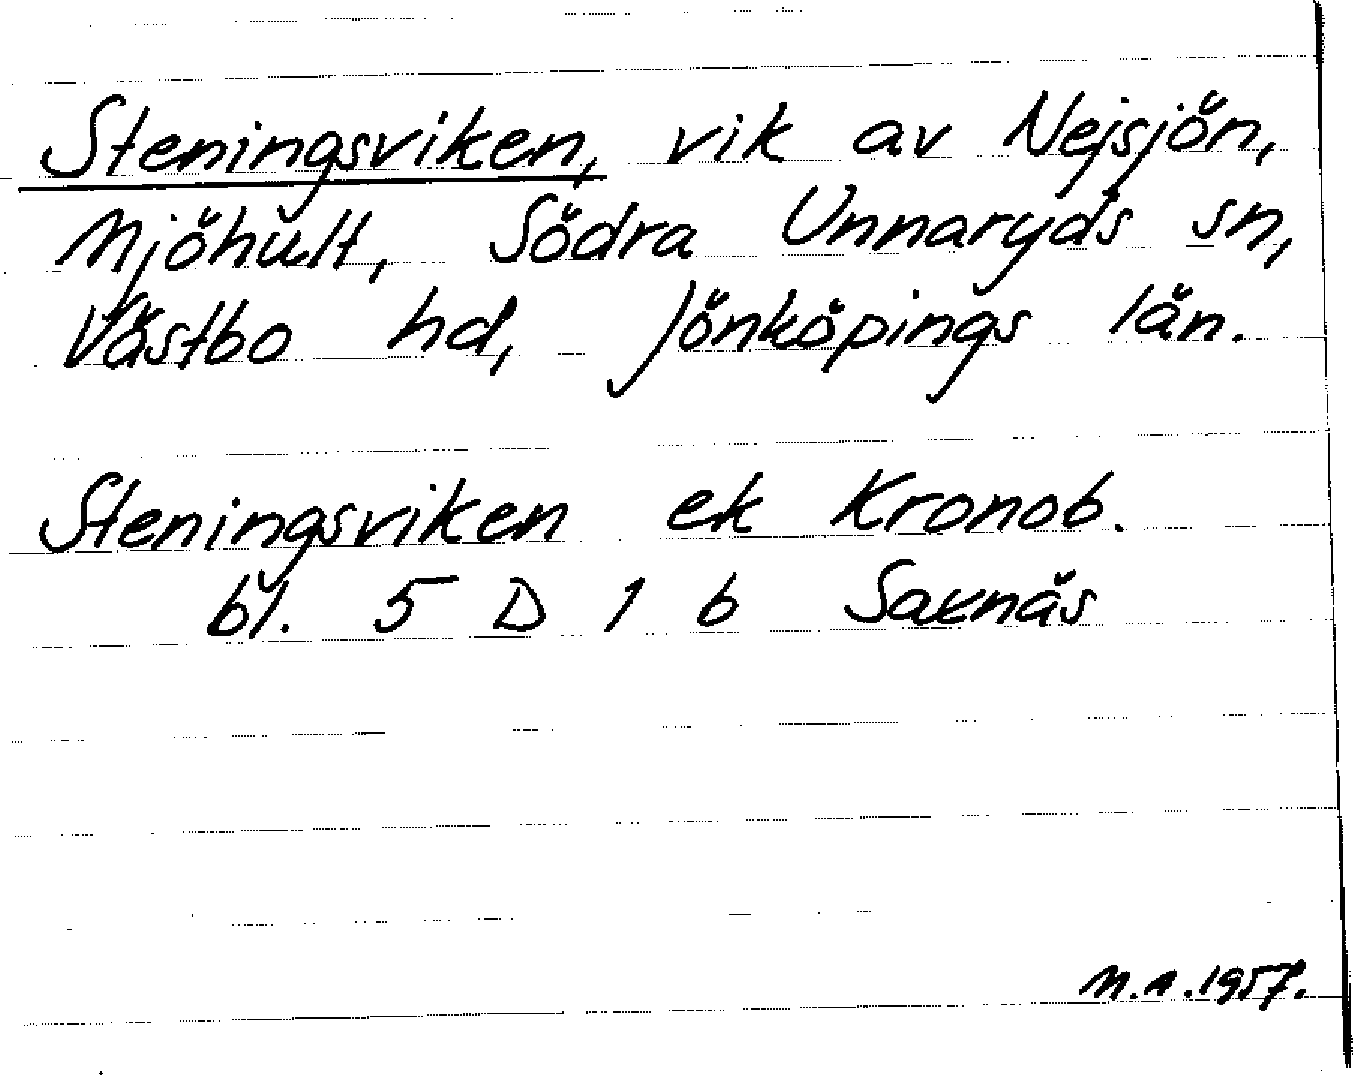 Steningsviken, vik av Nejsjön,
Mjöhult, Södra Unnaryds sn,
Västbo hd, Jönköpings län.
Steningsviken ek Kronob.
bl. 5 D 1 b Saxnäs
M.A.1957.